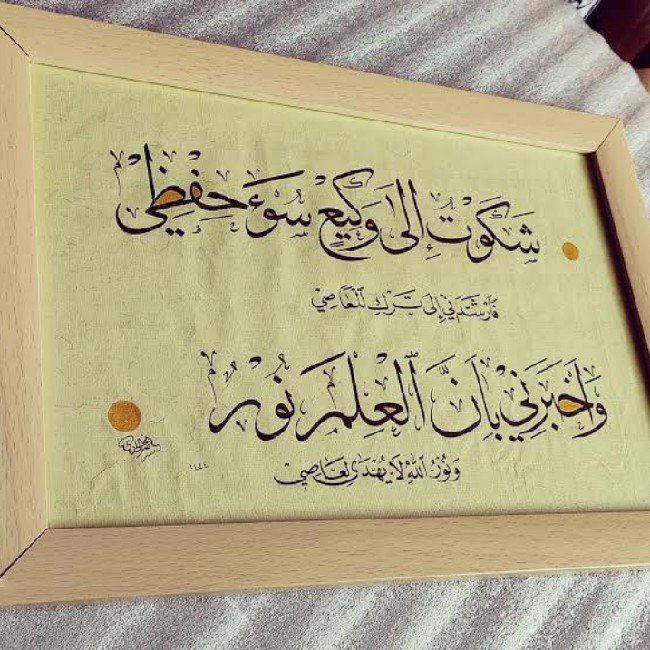 شَكَوْتُ إِلَى وَكِيْعٍ سُوْءَ حِفْظِيْ
فَأَرْشَدَنِيْ إِلَى تَرْكِ الْمَعَاصِيْ
وَاَخْبَرَنِيْ بِاَنَّ ٱلْعِلْمَ نُوْرٌ
وَنُوْرُ اللّٰهِ لَا يُهْدَى لِعَاصِيْ
١٤٤٤